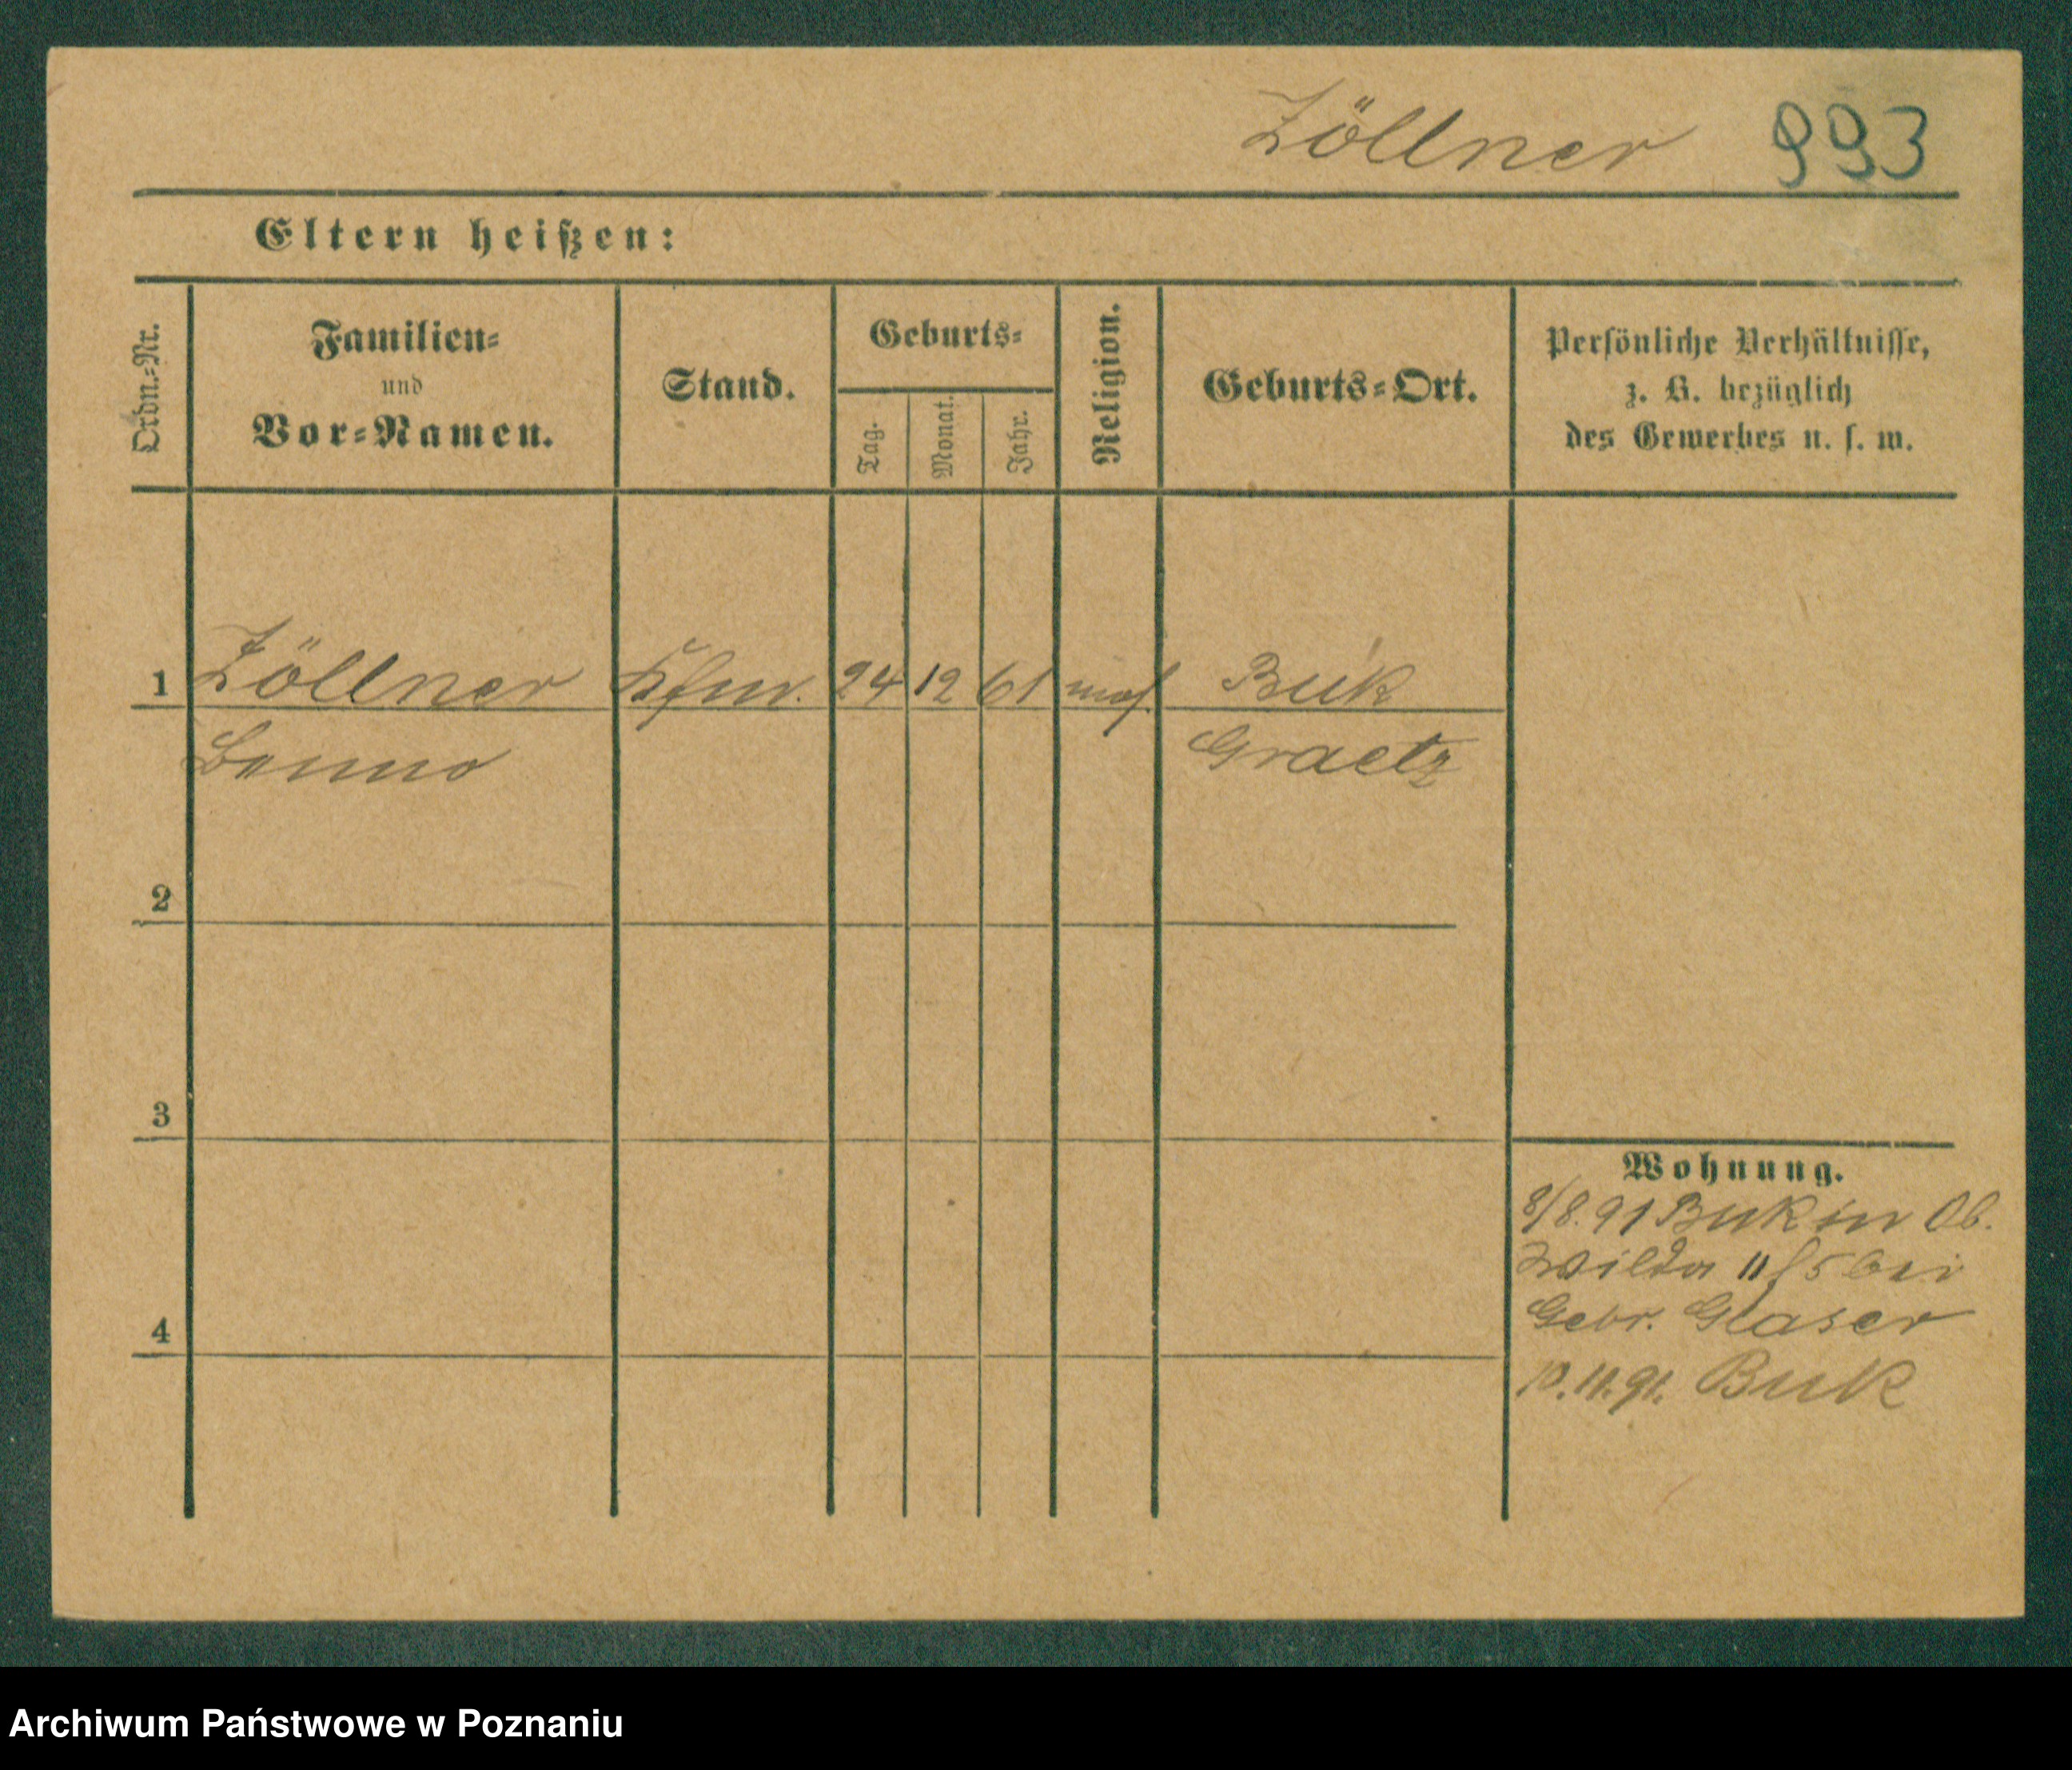 Zöllner 993
Eltern heißen:
Ordn.-Nr.
Familien-
und
Vor-Namen.
Stand.
Geburts-
Tag.
Monat.
Jahr.
Religion.
Geburts-Ort.
Persönliche Verhältnisse,
z. B. bezüglich
des Gewerbes u. s. w.
1 Zöllner Kfm. 24 12 61 mos. Buk
Benno Graetz
2
3
4
Wohnung.
8/8.91 Buk in Ob.
Wilda 115 bei
Gebr. Glaser
10.11.91. Buk
Archiwum Państwowe w Poznaniu